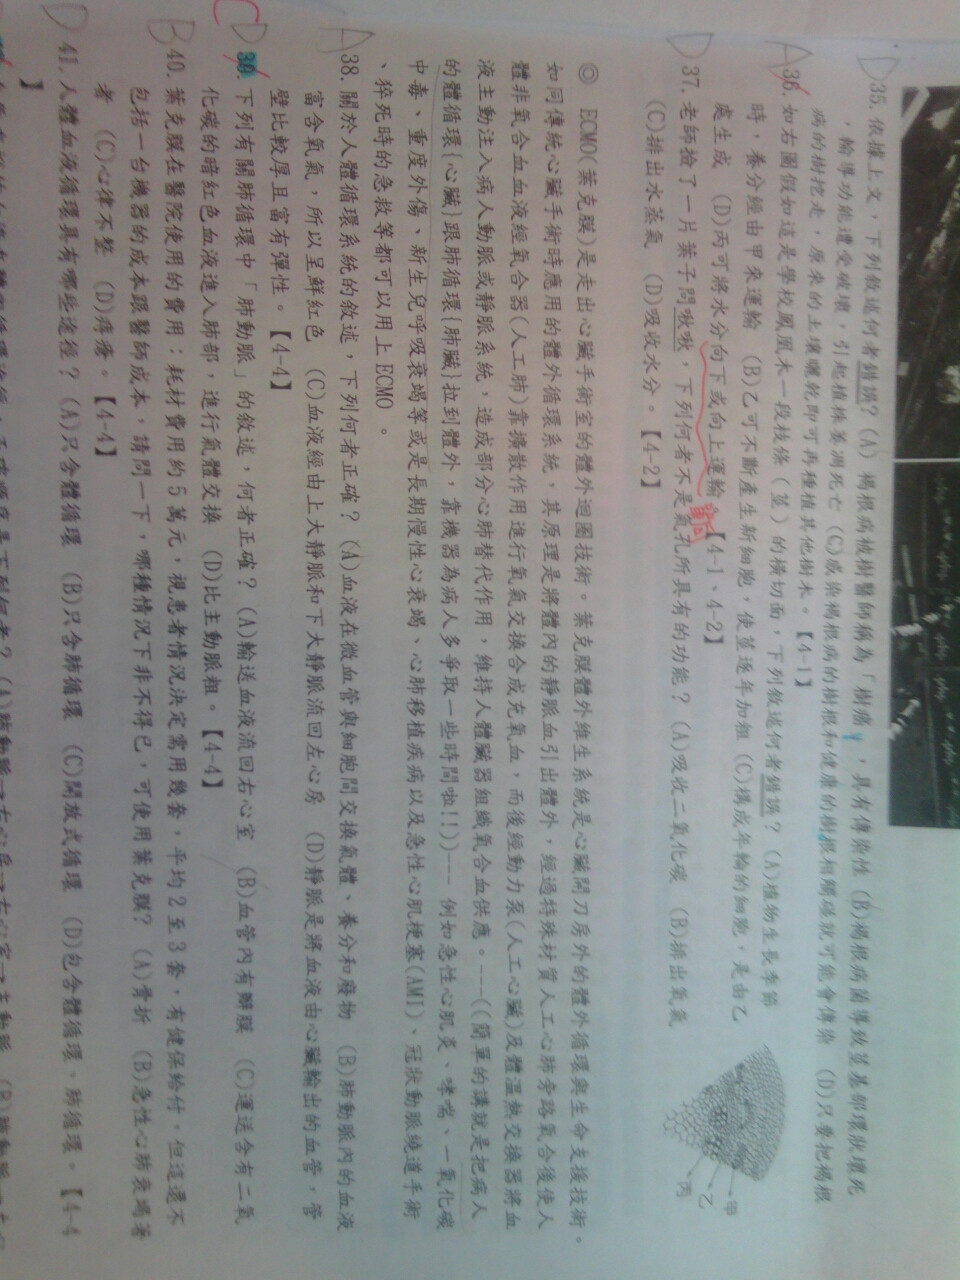 D 35. 依據上文，下列敘述何者錯誤？(A) 褐根病被樹醫師稱為「樹癌」，具有傳染性 (B)褐根病菌導致莖基部環狀壞死
，輸導功能遭受破壞，引起植株萎凋死亡 (C)感染褐根病的樹根和健康的樹根相觸碰就可能會傳染 (D)只要把褐根
病的樹挖走，原來的土壤曬乾即可再種植其他樹木。【4-1】
A 36. 如右圖假如這是學校鳳凰木一段枝條（莖）的橫切面，下列敘述何者錯誤？(A)植物生長季節
時，養分經由甲來運輸 (B)乙可不斷產生新細胞，使莖逐年加粗 (C)構成年輪的細胞，是由乙
處生成 (D)丙可將水分向下或向上運輸。【4-1、4-2】
甲
乙
丙
D 37. 老師撿了一片葉子問啾啾，下列何者不是氣孔所具有的功能？(A)吸收二氧化碳 (B)排出氧氣
(C)排出水蒸氣 (D)吸收水分。【4-2】
◎ ECMO(葉克膜)是走出心臟手術室的體外迴圈技術。葉克膜體外維生系統是心臟開刀房外的體外循環與生命支援技術。
如同傳統心臟手術時應用的體外循環系統，其原理是將體內的靜脈血引出體外，經過特殊材質人工心肺旁路氧合後使人
體非氧合血血液經氧合器(人工肺)靠擴散作用進行氧氣交換合成充氧血，而後經動力泵(人工心臟)及體溫熱交換器將血
液主動注入病人動脈或靜脈系統，造成部分心肺替代作用，維持人體臟器組織氧合血供應。---((簡單的講就是把病人
的體循環{心臟}跟肺循環{肺臟}拉到體外，靠機器為病人多爭取一些時間啦!!))--- 例如急性心肌炎、哮喘、一氧化碳
中毒、重度外傷、新生兒呼吸衰竭等或是長期慢性心衰竭、心肺移植疾病以及急性心肌梗塞(AMI)、冠狀動脈繞道手術
、猝死時的急救等都可以用上 ECMO 。
A 38. 關於人體循環系統的敘述，下列何者正確？(A)血液在微血管與細胞間交換氣體、養分和廢物 (B)肺動脈內的血液
富含氧氣，所以呈鮮紅色 (C)血液經由上大靜脈和下大靜脈流回左心房 (D)靜脈是將血液由心臟輸出的血管，管
壁比較厚且富有彈性。【4-4】
C 39. 下列有關肺循環中「肺動脈」的敘述，何者正確？(A)輸送血液流回右心室 (B)血管內有瓣膜 (C)運送含有二氧
化碳的暗紅色血液進入肺部，進行氣體交換 (D)比主動脈粗。【4-4】
B 40. 葉克膜在醫院使用的費用：耗材費用約 5 萬元，視患者情況決定需用幾套，平均 2 至 3 套，有健保給付，但這還不
包括一台機器的成本跟醫師成本，請問一下，哪種情況下非不得已，可使用葉克膜？ (A)骨折 (B)急性心肺衰竭著
者 (C)心律不整 (D)痔瘡。【4-4】
D 41. 人體血液循環具有哪些途徑？(A)只含體循環 (B)只含肺循環 (C)開放式循環 (D)包含體循環、肺循環。【4-4
】